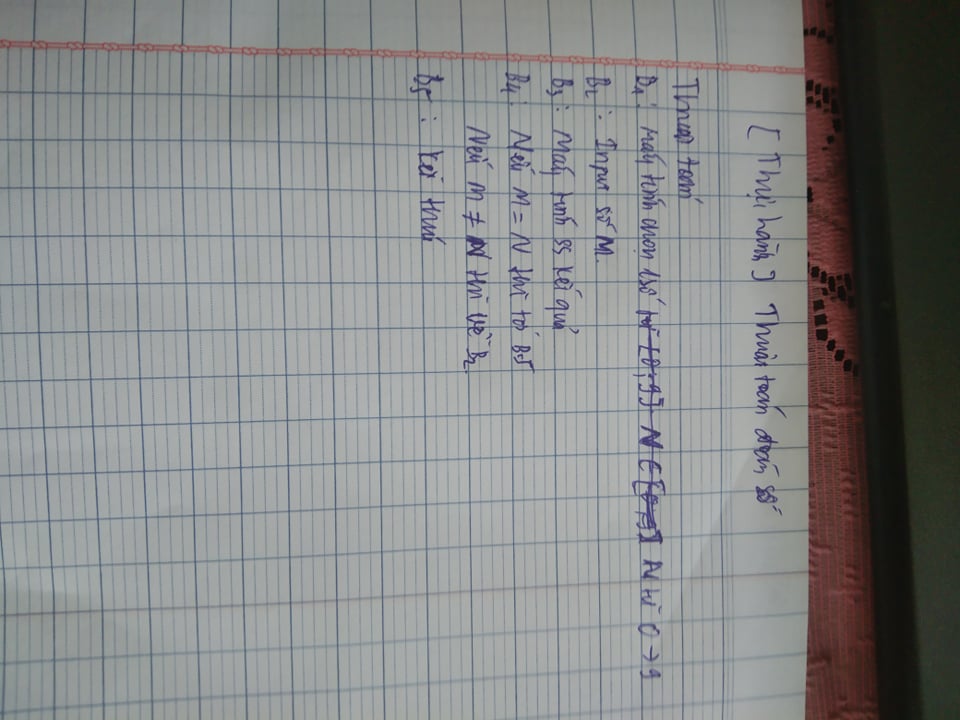 [Thực hành] Thuật toán đoán số
Thuật toán
B1: Máy tính chọn 1 số từ [0; 9] N ∈ N từ 0 → 9
B2: Input số M.
B3: Máy tính ss kết quả
B4: Nếu M = N thì tới B5
Nếu M ≠ N thì về B2.
B5: kết thúc